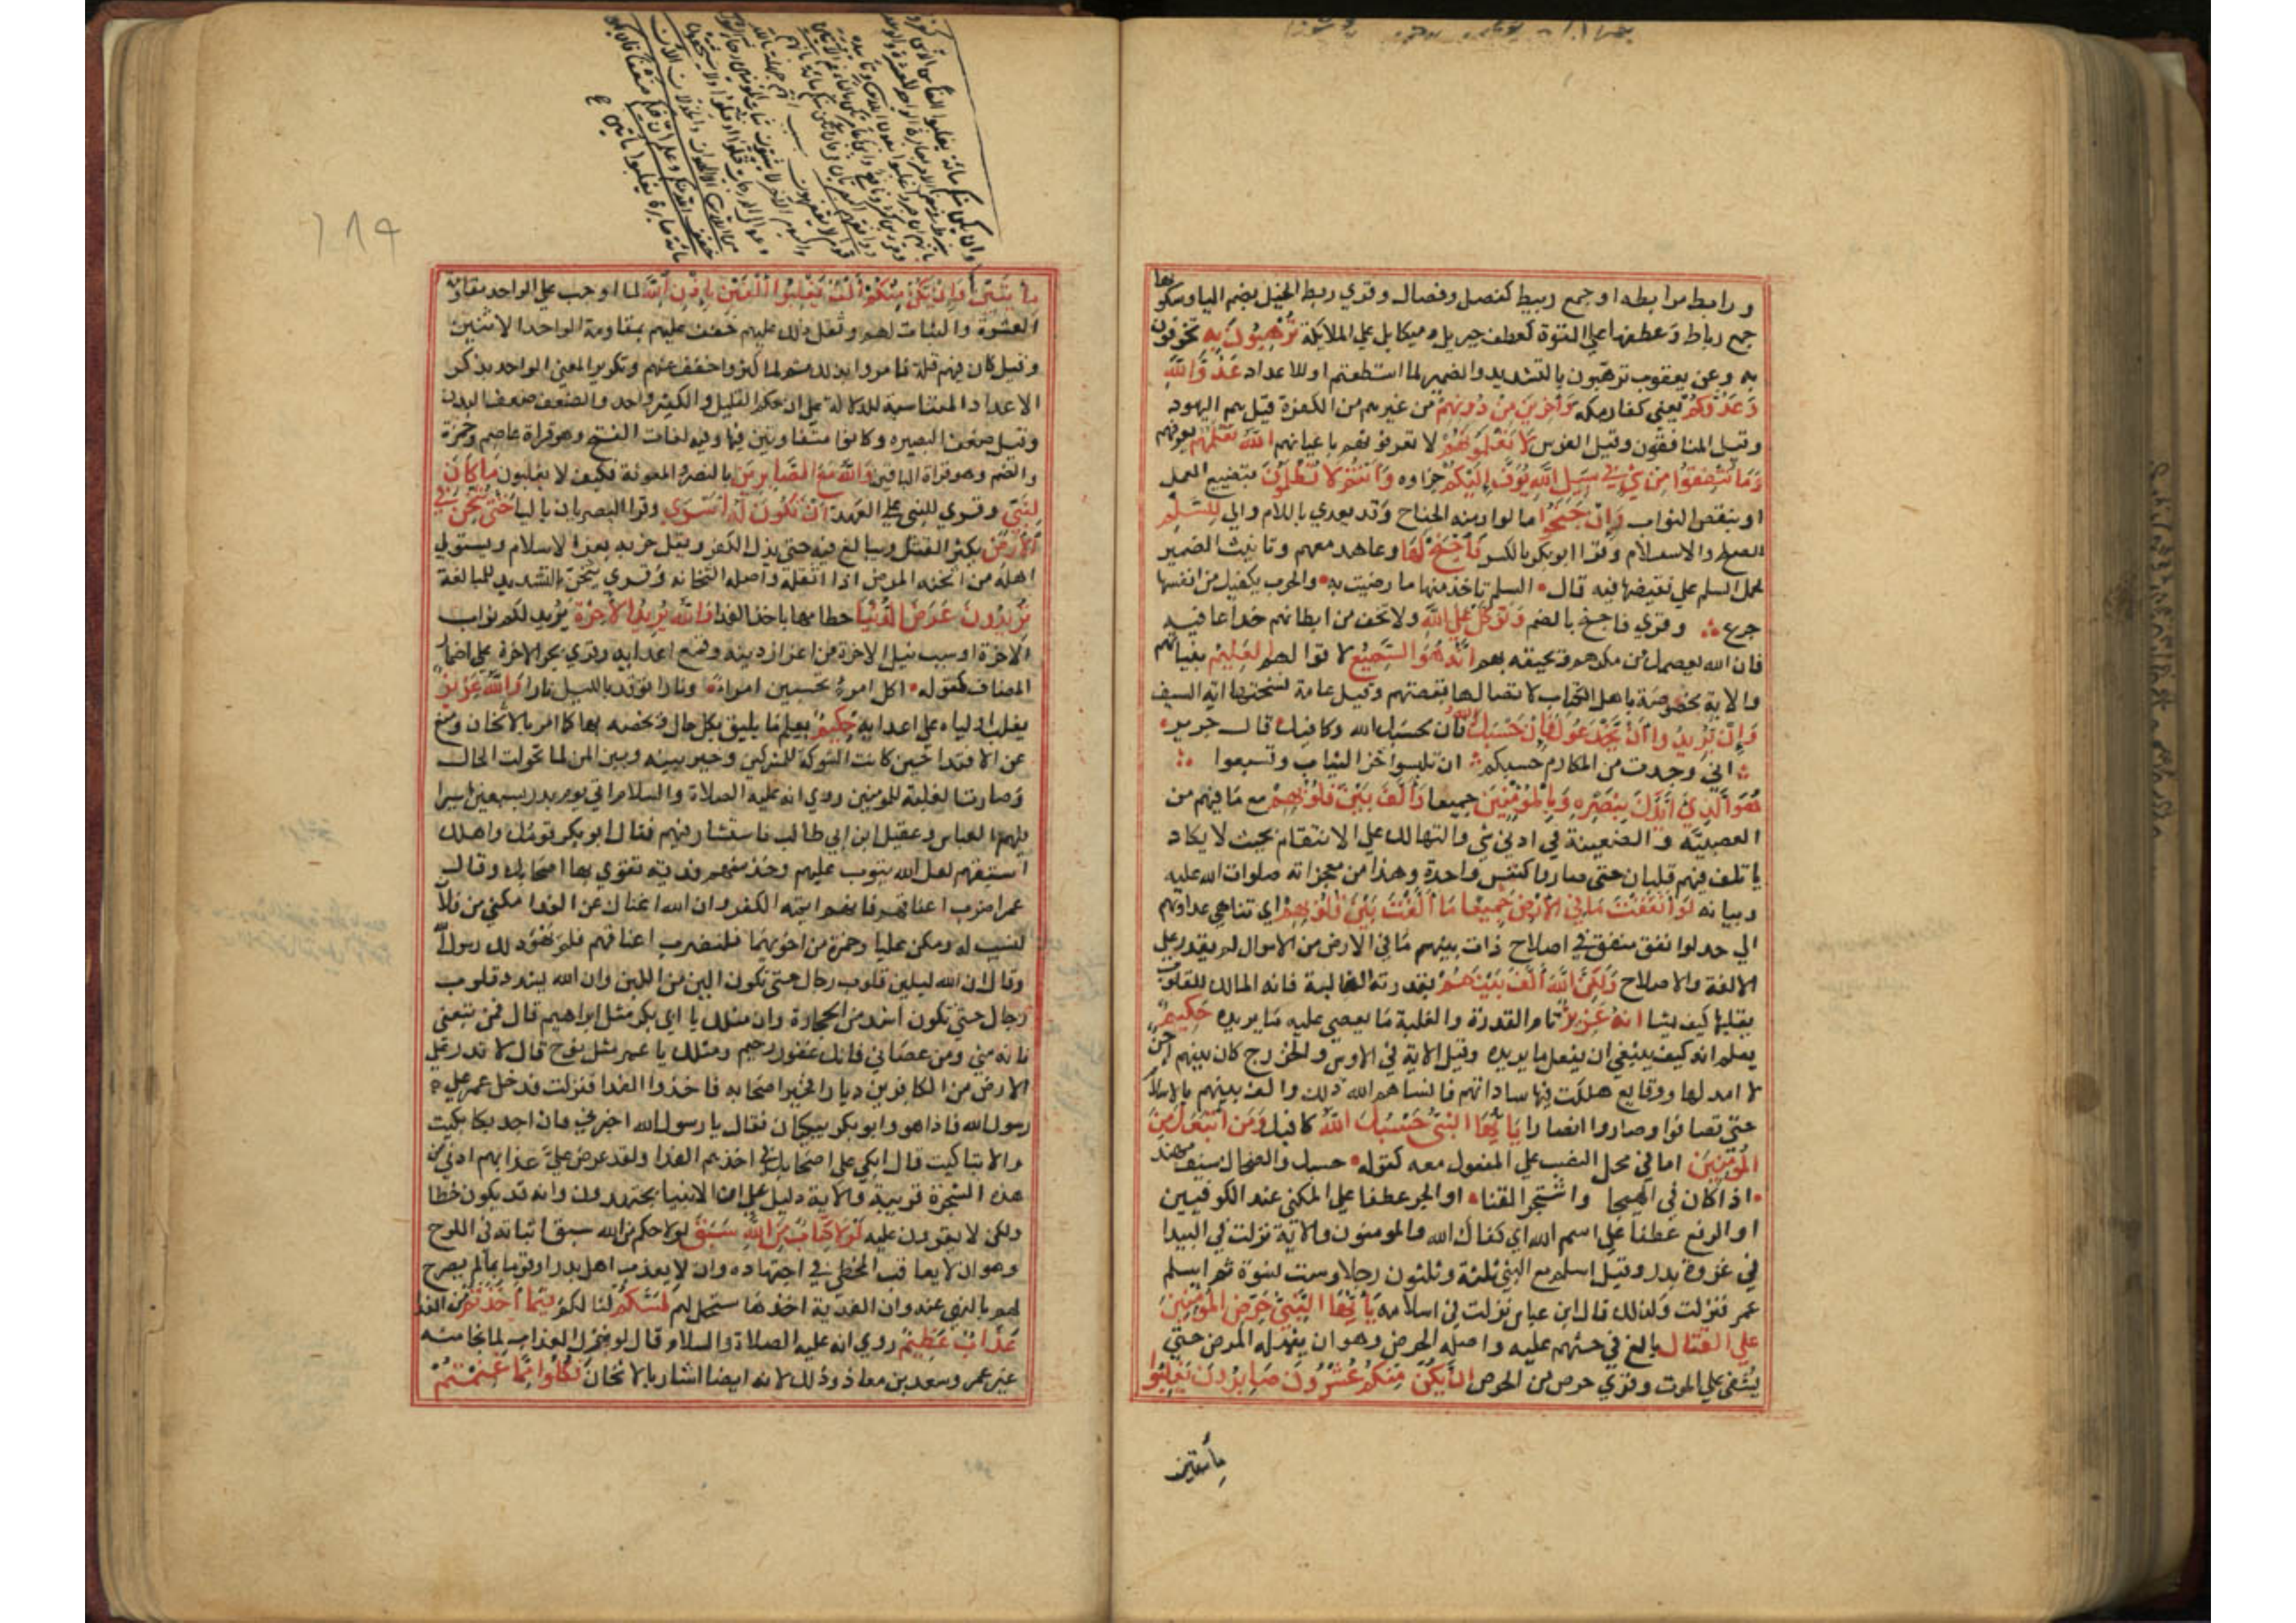 ورابط مرابطه او جمع ربيط كفصل وفصال وقري ربط الخيل بضم البا وسكونها
جمع رباط وعطفها علي القوة كعطف جبريل وميكايل علي الملايكة تُرْهِبُونَ بِهِ تخوفون
به وعن يعقوب ترهّبون بالتشديد والضمير لما استطعتم او للاعداد عَدُوَّ اللَّهِ
وَعَدُوَّكُمْ يعني كفار مكه وَآخَرِينَ مِنْ دُونِهِمْ من غيرهم من الكفرة قيل هم اليهود
وقيل المنافقون وقيل الفرس لَا تَعْلَمُونَهُمُ لا تعرفونهم باعيانهم اللَّهُ يَعْلَمُهُمْ يعرفهم
وَمَا تُنْفِقُوا مِنْ شَيْءٍ فِي سَبِيلِ اللَّهِ يُوَفَّ إِلَيْكُمْ جزاوه وَأَنْتُمْ لَا تُظْلَمُونَ بتضييع العمل
او بنقص الثواب وَإِنْ جَنَحُوا مالوا ومنه الجناح وقد يعدي باللام والي لِلسَّلْمِ
الصلح والاستسلام وقرا ابوبكر بالكسر فَاجْنَحْ لَهَا وعاهد معهم وتانيث الضمير
لحمل السلم علي نقيضها فيه قال السلم تاخذ منها ما رضيت به والحرب يكفيك من انفسها
جرع وقري فاجنح بالضم وَتَوَكَّلْ عَلَى اللَّهِ ولا تخف من ابطانهم خداعا فيه
فان الله يعصمك من مكرهم ويحيقه بهم إِنَّهُ هُوَ السَّمِيعُ لاقوالهم الْعَلِيمُ بنياتهم
والاية مخصوصة باهل الكتاب لاتصالها بقصتهم وقيل عامة نسختها اية السيف
وَإِنْ يُرِيدُوا أَنْ يَخْدَعُوكَ فَإِنَّ حَسْبَكَ اللَّهُ فان محسبك الله وكافيك قال جرير
اني وجدت من المكارم حسبكم ان تلبسوا خز الثياب وتشبعوا
هُوَ الَّذِي أَيَّدَكَ بِنَصْرِهِ وَبِالْمُؤْمِنِينَ جميعا وَأَلَّفَ بَيْنَ قُلُوبِهِمْ مع ما فيهم من
العصبيّة والضغينة في ادني شي والتهالك علي الانتقام بحيث لا يكاد
ياتلف فيهم قلبان حتي صاروا كنفس واحدة وهذا من معجزاته صلوات الله عليه
وبيانه لَوْ أَنْفَقْتَ مَا فِي الْأَرْضِ جَمِيعًا مَا أَلَّفْتَ بَيْنَ قُلُوبِهِمْ اي تناهي عداوتهم
الي حد لو انفق منفق في اصلاح ذات بينهم ما في الارض من الاموال لم يقدر علي
الالفة والاصلاح وَلَكِنَّ اللَّهَ أَلَّفَ بَيْنَهُمْ بقدرته الغالبة فانه المالك للقلوب
يقلبها كيف يشا إِنَّهُ عَزِيزٌ تام القدرة والغلبة ما يعصي عليه ما يريده حَكِيمٌ
يعلم انه كيف ينبغي ان يفعل ما يريده وقيل الاية في الاوس والخزرج كان بينهم احن
لا امد لها ووقايع هلكت فيها ساداتهم فانساهم الله ذلك والف بينهم بالاسلام
حتي تصافوا وصاروا انصارا يَا أَيُّهَا النَّبِيُّ حَسْبُكَ اللَّهُ كافيك وَمَنِ اتَّبَعَكَ مِنَ
الْمُؤْمِنِينَ اما في محل النصب علي المفعول معه كقوله حسبك والضحاك سيف مهند
اذا كان في الهيجا وانشتجر القنا او الجر عطفا علي المكني عند الكوفيين
او الرفع عطفا علي اسم الله اي كفاك الله والمومنون والاية نزلت في البيدا
في غزوة بدر وقيل اسلم مع النبي ثلثة وثلثون رجلا وست نسوة ثم اسلم
عمر فنزلت ولذلك قال ابن عباس نزلت في اسلامه يَا أَيُّهَا النَّبِيُّ حَرِّضِ الْمُؤْمِنِينَ
عَلَى الْقِتَالِ بالغ في حثهم عليه واصله الحرض وهو ان ينهكه المرض حتي
يشفى علي الموت وقري حرص من الحرص إِنْ يَكُنْ مِنْكُمْ عِشْرُونَ صَابِرُونَ يَغْلِبُوا
مأتين
٢٨٩
مِائَتَيْنِ وَإِنْ يَكُنْ مِنْكُمْ أَلْفٌ يَغْلِبُوا أَلْفَيْنِ بِإِذْنِ اللَّهِ لما اوجب علي الواحد مقاومة
العشرة والثبات لهم وثقل ذلك عليهم خفف عليهم بمقاومة الواحد الاثنين
وقيل كان فيهم قلة فامروا بذلك ثم لما كثروا خفف عنهم وتكرير المعني الواحد بذكر
الاعداد المتناسبة للدلالة علي ان حكم القليل والكثير واحد والضعف ضعف البدن
وقيل ضعف البصيره وكانوا متفاوتين فيها وفيه لغات الفتح وهو قراة عاصم وحمزة
والضم وهو قراة الباقين وَاللَّهُ مَعَ الصَّابِرِينَ بالنصر والمعونة فكيف لا يغلبون مَا كَانَ
لِنَبِيٍّ وقري للنبي علي العهد أَنْ تَكُونَ لَهُ أَسْرَى وقرا البصريان باليا حَتَّى يُثْخِنَ فِي
الْأَرْضِ يكثر القتل ويبالغ فيه حتي يذل الكفر ويقل حزبه ويعز الاسلام ويستولي
اهله من اثخنه المرض اذا اثقله واصله الثخانه وقري يثخّن بالتشديد للمبالغة
تُرِيدُونَ عَرَضَ الدُّنْيَا حطامها باخذ الفدا وَاللَّهُ يُرِيدُ الْآخِرَةَ يريد لكم ثواب
الاخرة او سبب نيل الاخرة من اعزاز دينه وقمع اعدايه وقري بجر الاخرة علي اضمار
المضاف كقوله اكل امرئ تحسبين امراة ونار توقد بالليل نارا وَاللَّهُ عَزِيزٌ
يغلب اولياه علي اعدايه حَكِيمٌ يعلم ما يليق بكل حال ويخصه بها كما امر بالاثخان ومنع
عن الافتدا حين كانت الشوكة للمشركين وخير بينه وبين المن لما تحولت الحال
وصارت الغلبة للمومنين روي انه عليه الصلاة والسلام اتي يوم بدر بسبعين اسيرا
فيهم العباس وعقيل ابن ابي طالب فاستشار فيهم فقال ابو بكر قومك واهلك
استبقهم لعل الله يتوب عليهم وخذ منهم فدية تقوي بها اصحابك وقال
عمر اضرب اعناقهم فانهم ايمة الكفر وان الله اغناك عن الفدا مكني من فلان
لنسيب له ومكن عليا وحمزة من اخويهما فلنضرب اعناقهم فلم يهو ذلك رسول الله
وقال ان الله ليلين قلوب رجال حتي تكون الين من اللبن وان الله ليشدد قلوب
رجال حتي تكون اشد من الحجارة وان مثلك يا ابي بكر مثل ابراهيم قال فمن تبعني
فانه مني ومن عصاني فانك غفور رحيم ومثلك يا عمر مثل نوح قال لا تذر علي
الارض من الكافرين ديارا فخير اصحابه فاخذوا الفدا فنزلت فدخل عمر علي
رسول الله فاذا هو وابو بكر يبكيان فقال يا رسول الله اخبرني فان اجد بكا بكيت
والا تباكيت قال ابكي علي اصحابك في اخذهم الفدا ولقد عرض عليّ عذابهم ادني من
هذه الشجرة قريبة والاية دليل علي ان الانبيا يجتهدون وانه قد يكون خطا
ولكن لا يقرون عليه لَوْلَا كِتَابٌ مِنَ اللَّهِ سَبَقَ لولا حكم من الله سبق اثباته في اللوح
وهو ان لا يعاقب المخطي في اجتهاده وان لا يعذب اهل بدر او قوما بما لم يصرح
لهم بالنهي عنه وان الفدية اخذها ستحل لهم لَمَسَّكُمْ لنالكم فِيمَا أَخَذْتُمْ من الفدا
عَذَابٌ عَظِيمٌ روي انه عليه الصلاة والسلام قال لو نزل العذاب لما نجا منه
غير عمر وسعد بن معاذ وذلك لانه ايضا اشار بالاثخان فَكُلُوا مِمَّا غَنِمْتُمْ